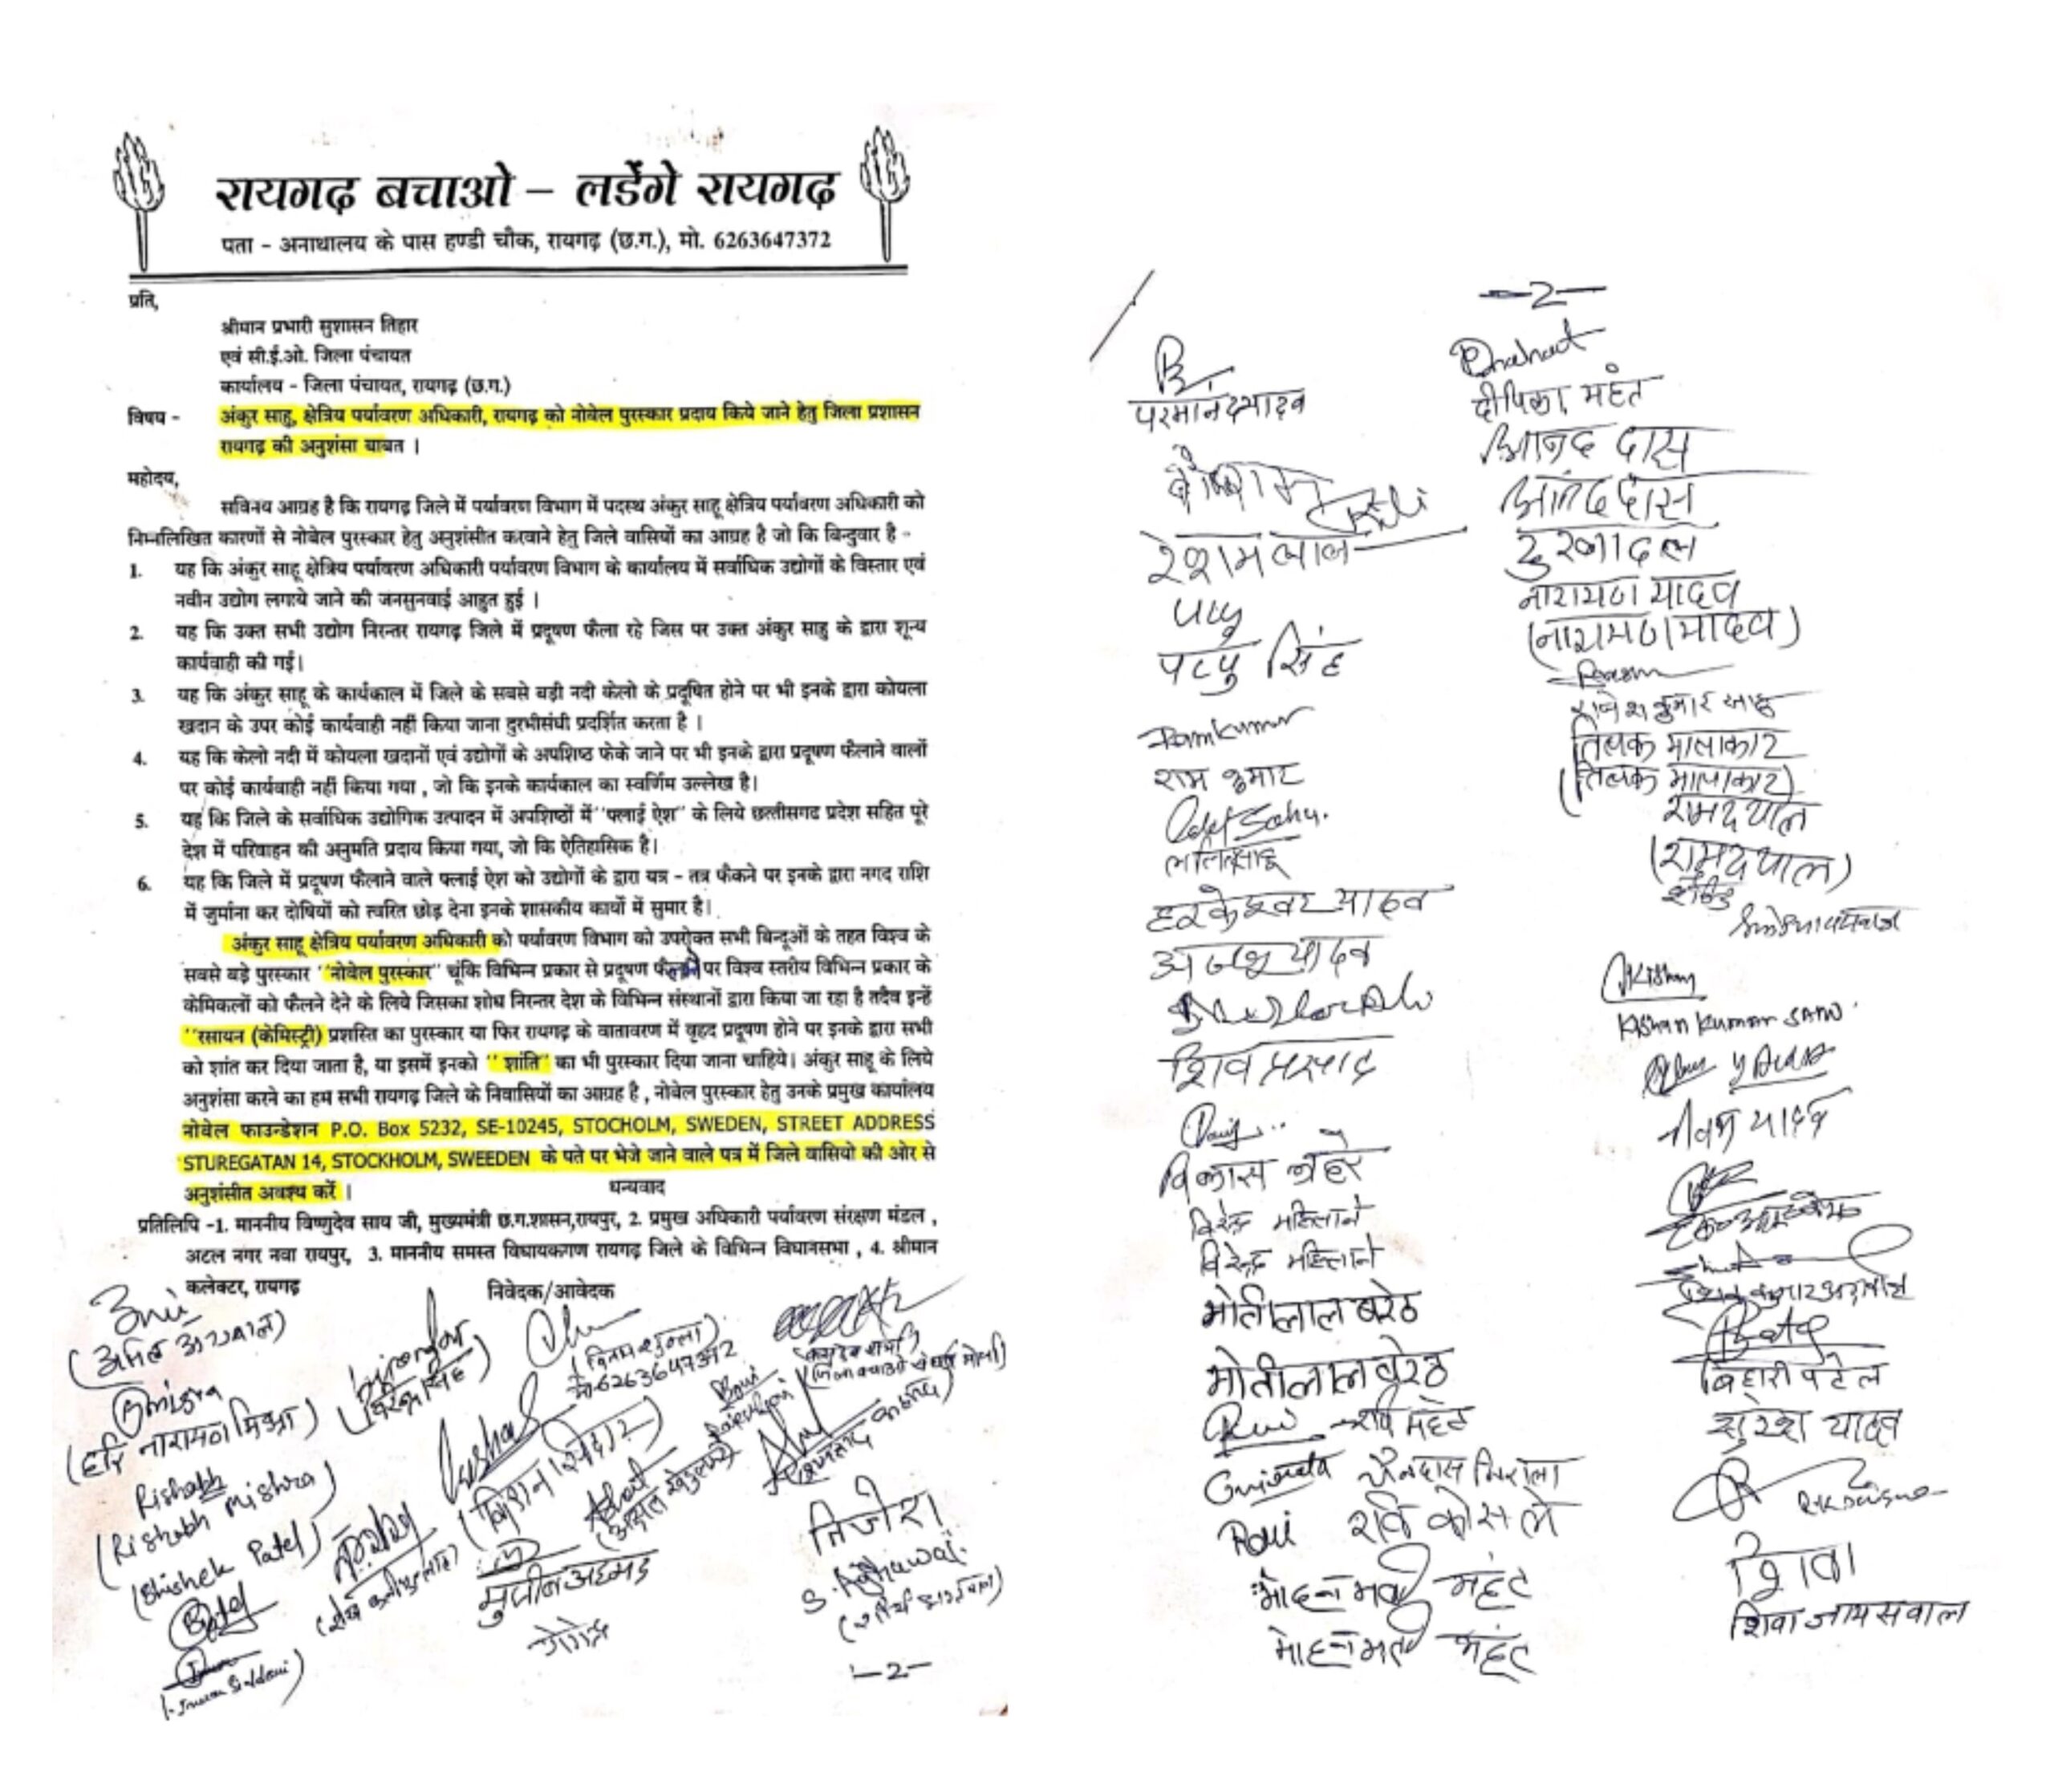 रायगढ़ बचाओ – लडेंगे रायगढ़
पता - अनाथालय के पास हण्डी चौक, रायगढ़ (छ.ग.), मो. 6263647372
प्रति,
श्रीमान प्रभारी सुशासन तिहार
एवं सी.ई.ओ. जिला पंचायत
कार्यालय - जिला पंचायत, रायगढ़ (छ.ग.)
विषय - अंकुर साहु, क्षेत्रिय पर्यावरण अधिकारी, रायगढ़ को नोबेल पुरस्कार प्रदाय किये जाने हेतु जिला प्रशासन
रायगढ़ की अनुशंसा बाबत ।
महोदय,
सविनय आग्रह है कि रायगढ़ जिले में पर्यावरण विभाग में पदस्थ अंकुर साहू क्षेत्रिय पर्यावरण अधिकारी को
निम्नलिखित कारणों से नोबेल पुरस्कार हेतु अनुशंसीत करवाने हेतु जिले वासियों का आग्रह है जो कि बिन्दुवार है -
1. यह कि अंकुर साहू क्षेत्रिय पर्यावरण अधिकारी पर्यावरण विभाग के कार्यालय में सर्वाधिक उद्योगों के विस्तार एवं
नवीन उद्योग लगाये जाने की जनसुनवाई आहुत हुई ।
2. यह कि उक्त सभी उद्योग निरन्तर रायगढ़ जिले में प्रदूषण फैला रहे जिस पर उक्त अंकुर साहु के द्वारा शून्य
कार्यवाही की गई।
3. यह कि अंकुर साहू के कार्यकाल में जिले के सबसे बड़ी नदी केलो के प्रदूषित होने पर भी इनके द्वारा कोयला
खदान के उपर कोई कार्यवाही नहीं किया जाना दुरभीसंधी प्रदर्शित करता है ।
4. यह कि केलो नदी में कोयला खदानों एवं उद्योगों के अपशिष्ठ फेके जाने पर भी इनके द्वारा प्रदूषण फैलाने वालों
पर कोई कार्यवाही नहीं किया गया , जो कि इनके कार्यकाल का स्वर्णिम उल्लेख है।
5. यह कि जिले के सर्वाधिक उद्योगिक उत्पादन में अपशिष्ठों में''फ्लाई ऐश'' के लिये छत्तीसगढ प्रदेश सहित पूरे
देश में परिवाहन की अनुमति प्रदाय किया गया, जो कि ऐतिहासिक है।
6. यह कि जिले में प्रदूषण फैलाने वाले फ्लाई ऐश को उद्योगों के द्वारा यत्र - तत्र फैंकने पर इनके द्वारा नगद राशि
में जुर्माना कर दोषियों को त्वरित छोड़ देना इनके शासकीय कार्यों में सुमार है।
अंकुर साहू क्षेत्रिय पर्यावरण अधिकारी को पर्यावरण विभाग को उपरोक्त सभी बिन्दूओं के तहत विश्व के
सबसे बड़े पुरस्कार ''नोबेल पुरस्कार'' चूंकि विभिन्न प्रकार से प्रदूषण फैलाने पर विश्व स्तरीय विभिन्न प्रकार के
केमिकलों को फैलने देने के लिये जिसका शोध निरन्तर देश के विभिन्न संस्थानों द्वारा किया जा रहा है तदैव इन्हें
''रसायन (केमिस्ट्री) प्रशस्ति का पुरस्कार या फिर रायगढ़ के वातावरण में वृहद प्रदूषण होने पर इनके द्वारा सभी
को शांत कर दिया जाता है, या इसमें इनको ''शांति'' का भी पुरस्कार दिया जाना चाहिये। अंकुर साहू के लिये
अनुशंसा करने का हम सभी रायगढ़ जिले के निवासियों का आग्रह है , नोबेल पुरस्कार हेतु उनके प्रमुख कार्यालय
नोबेल फाउन्डेशन P.O. Box 5232, SE-10245, STOCHOLM, SWEDEN, STREET ADDRESS
STUREGATAN 14, STOCKHOLM, SWEEDEN के पते पर भेजे जाने वाले पत्र में जिले वासियो की ओर से
अनुशंसीत अवश्य करें ।
धन्यवाद
प्रतिलिपि -1. माननीय विष्णुदेव साय जी, मुख्यमंत्री छ.ग.शासन,रायपुर, 2. प्रमुख अधिकारी पर्यावरण संरक्षण मंडल ,
अटल नगर नवा रायपुर, 3. माननीय समस्त विधायकगण रायगढ़ जिले के विभिन्न विधानसभा , 4. श्रीमान
कलेक्टर, रायगढ़
निवेदक/आवेदक
(हरि नारायण मिश्रा)
Rishabh
(Rishabh Mishra)
6263647372
S. Agrawal
—2—
—2—
परमानंद यादव
रेशम लाल
पप्पु
पप्पु सिंह
Ramkumar
राम कुमार
हरकेश्वर यादव
शिव प्रसाद
विरेन्द्र महिलाने
विरेन्द्र महिलाने
मोतीलाल बरेठ
मोतीलाल बरेठ
Ravi रवि महंत
Ravi रवि कोसले
मोहनमती महंत
मोहनमती महंत
दीपिका महंत
आनंद दास
आनंद दास
नारायण यादव
(नारायण यादव)
तिलक मालाकार
(तिलक मालाकार)
रामदयाल
(रामदयाल)
Kishan
Kishan Kumar SAW
बिहारी पटेल
सुरेश यादव
शिवा
शिवा जायसवाल